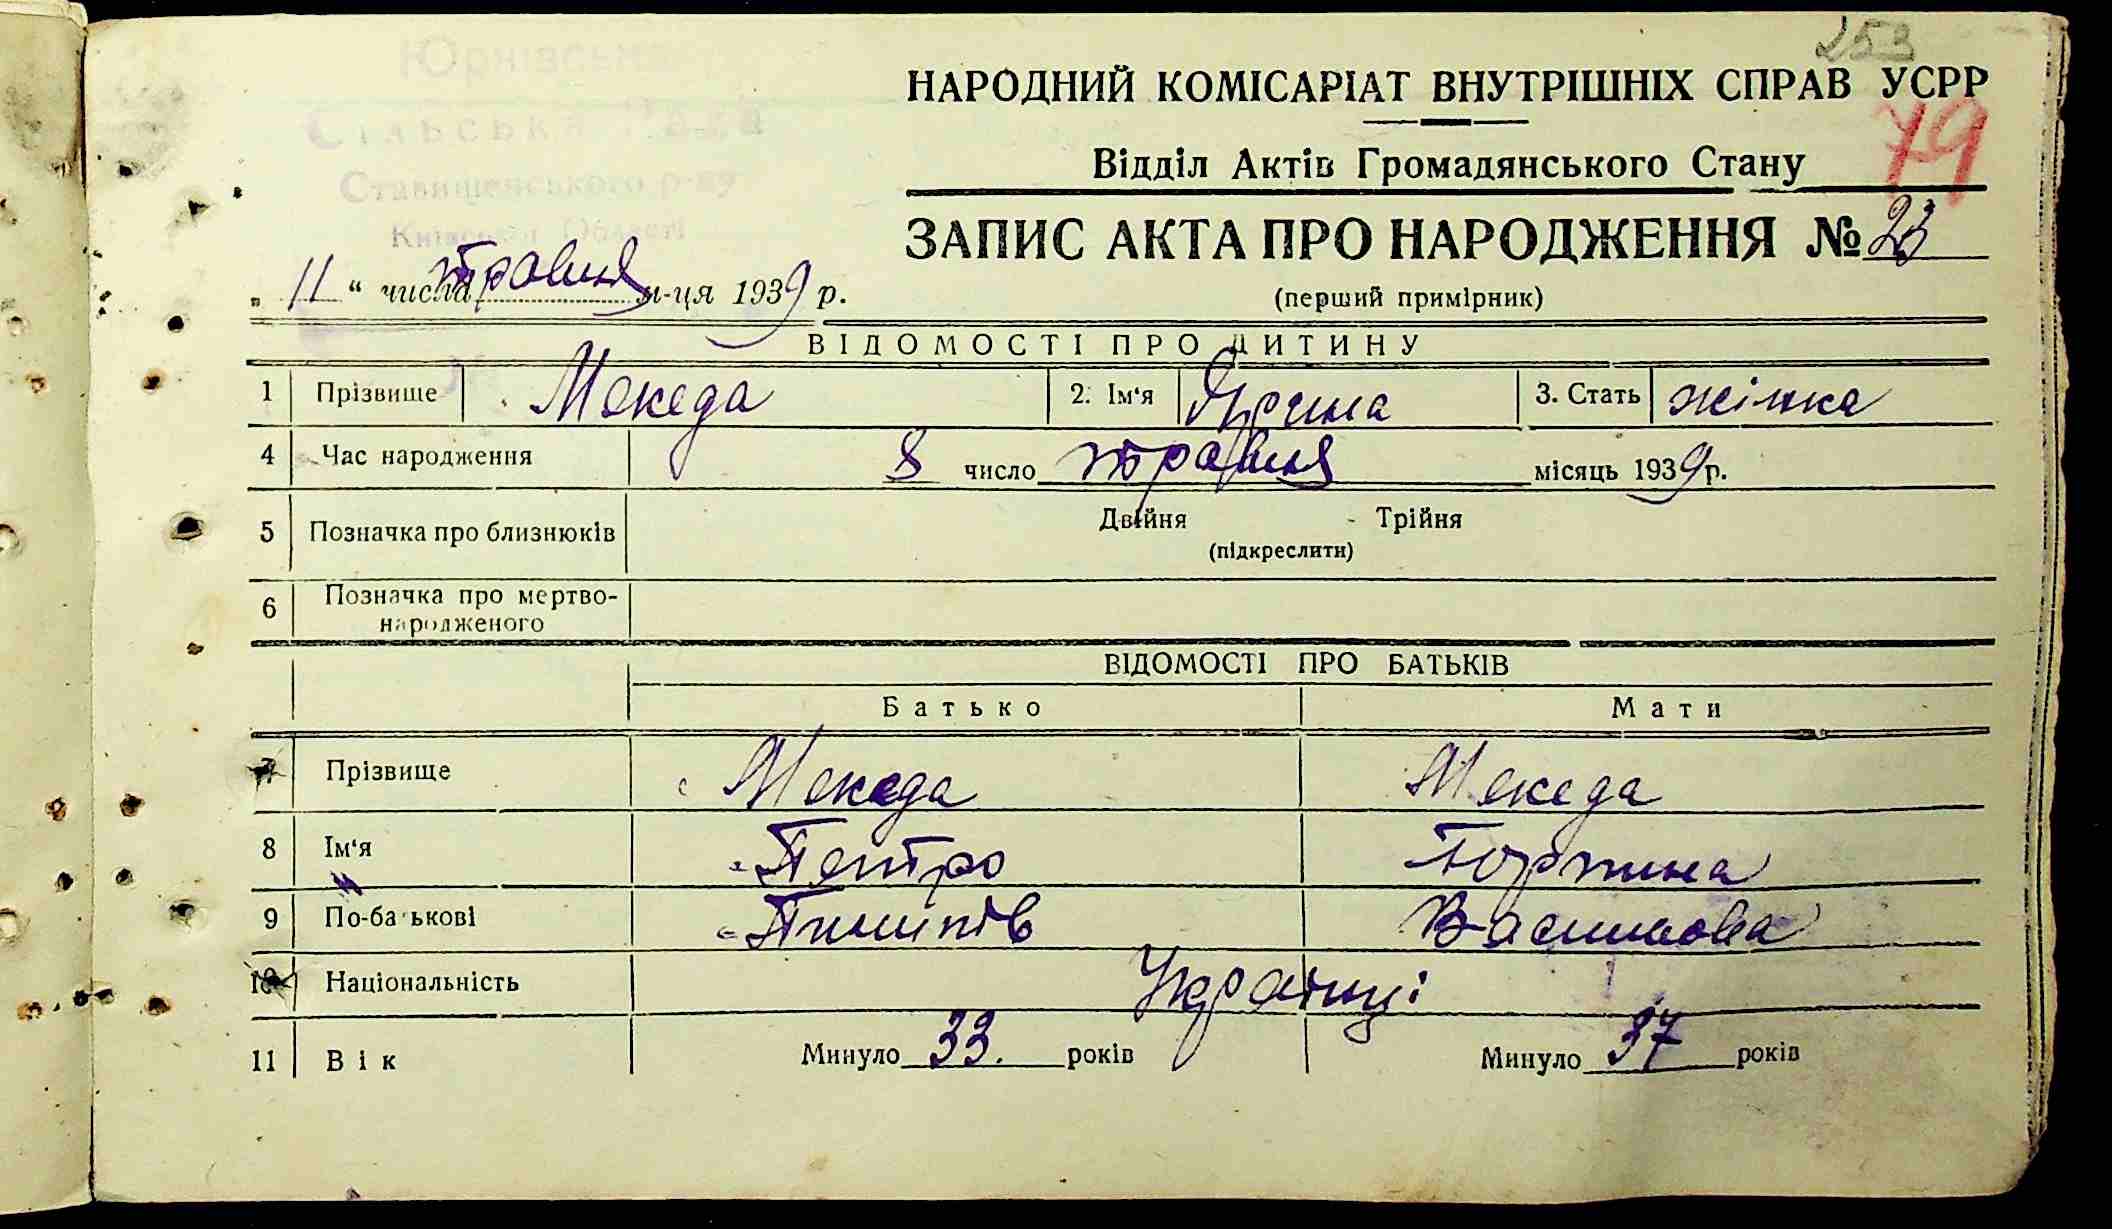 253
Юрнівська
НАРОДНИЙ КОМІСАРІАТ ВНУТРІШНІХ СПРАВ УСРР
79
Сільська Рада
Відділ Актів Громадянського Стану
Ставищенського р-ну
Київської Області
ЗАПИС АКТА ПРО НАРОДЖЕННЯ № 23
„ 11 “ числа травня м-ця 1939 р.
(перший примірник)
ВІДОМОСТІ ПРО ДИТИНУ
1 Прізвище Мекеда 2. Ім'я Ярина 3. Стать жінка
4 Час народження 8 число травня місяць 1939 р.
5 Позначка про близнюків Двійня Трійня
(підкреслити)
6 Позначка про мертво-
народженого
ВІДОМОСТІ ПРО БАТЬКІВ
Батько Мати
7 Прізвище Мекеда Мекеда
8 Ім'я Петро
9 По-батькові Пилипів Василовна
10 Національність Українці
11 Вік Минуло 33. років Минуло 37 років